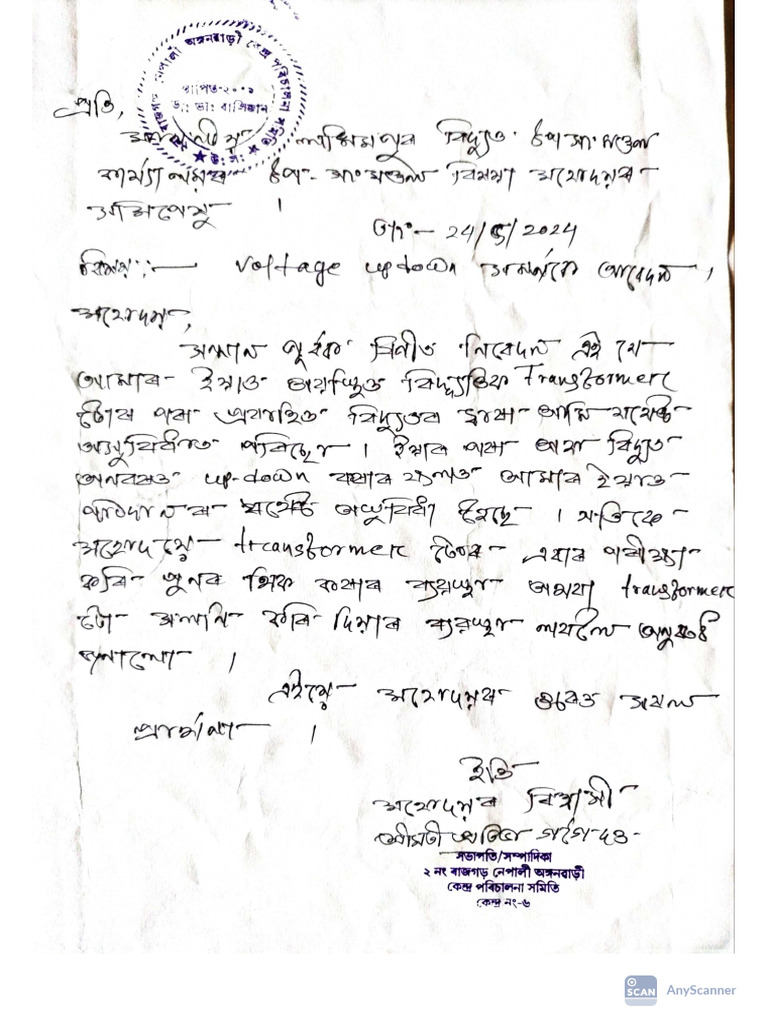 ২ নং ৰাজগড় নেপালী অঙ্গনবাড়ী কেন্দ্ৰ পৰিচালনা সমিতি
স্থাপিত-২০০১
প্ৰতি,
বিদ্যুত উপ সংমণ্ডল
কাৰ্য্যালয়ৰ উপ-সংমণ্ডল বিষয়া মহোদয়ৰ
সমিপেষু ।
তাং:- 24/5/2024
বিষয়:- Voltage up down সম্পৰ্কে আবেদন ।
মহোদয়,
সন্মান পুৰ্বক বিনীত নিবেদন এই যে
আমাৰ ইয়াত অৱস্থিত বিদ্যুতিক Transformer
টোৰ পৰা প্ৰবাহিত বিদ্যুতৰ দ্বাৰা আমি যথেষ্ট
অসুবিধাত পৰিছো । ইয়াৰ পৰা অহা বিদ্যুত
অনবৰত up-down কৰাৰ ফলত আমাৰ ইয়াত
পাঠদানৰ যথেষ্ট অসুবিধা হৈছে । গতিকে
মহোদয়ে transformer টোৰ এবাৰ পৰীক্ষা
কৰি পুনৰ ঠিক কৰাৰ ব্যৱস্থা অথবা transformer
টো সলনি কৰি দিয়াৰ ব্যৱস্থা লবলৈ অনুৰোধ
জনালো ।
এইয়ে মহোদয়ৰ ওচৰত
প্ৰাৰ্থনা ।
ইতি
মহোদয়ৰ বিশ্বাসী
শ্ৰীমতী গগৈ দত্ত
সভাপতি/সম্পাদিকা
২ নং ৰাজগড় নেপালী অঙ্গনবাড়ী
কেন্দ্ৰ পৰিচালনা সমিতি
কেন্দ্ৰ নং-৬
SCAN AnyScanner